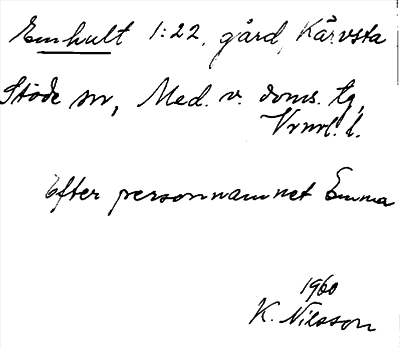 Emhult 1:22, gård, Kärvsta
Stöde sn, Med. v. doms. tg,
Vrnrl. l.
Efter personnamnet Emma
1960
K. Nilsson